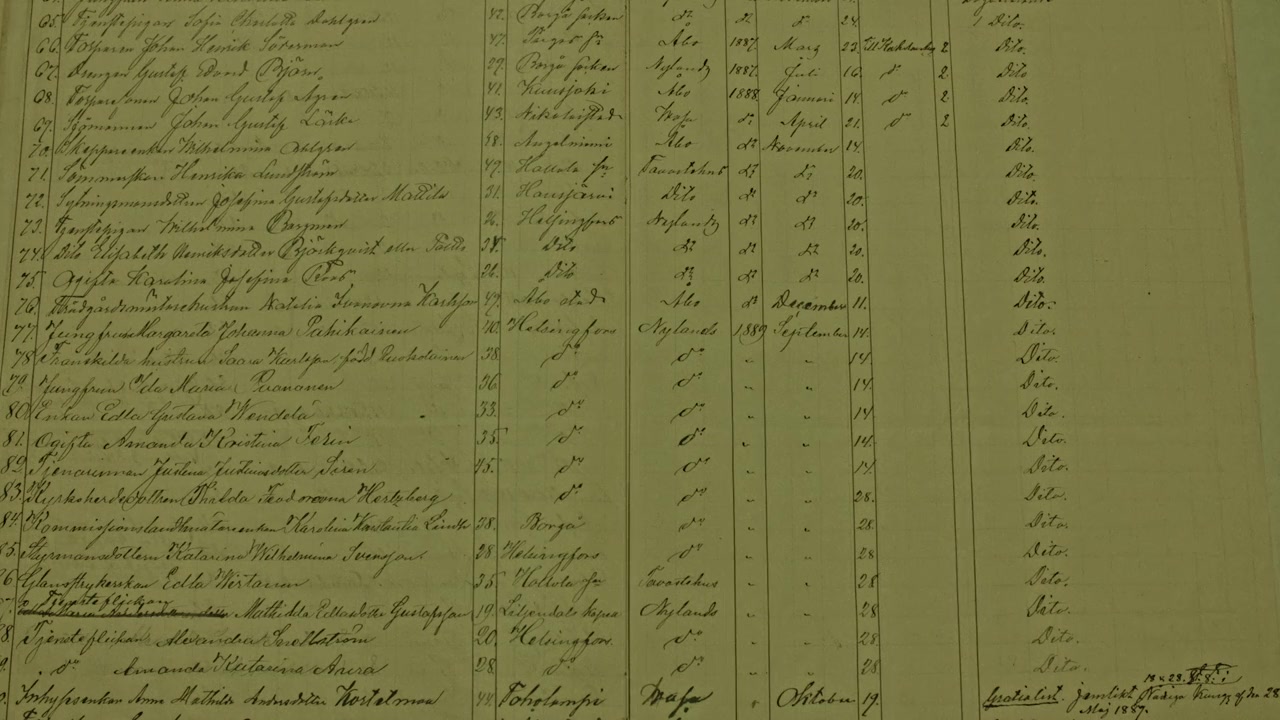 65. Tjenstepigan Sofia Charlotta Dahlgren 42. Borgå socken d:o d:o 24. Dito.
66. Torparen Johan Henrik Söderman 47. Åbo 1887. Mars 23. 2 Dito.
67. Drengen Gustaf David Björn 29. Borgå socken Nylands 1887. Juli 16. d:o 2 Dito
68. Torparesonen Johan Gustaf 41. Åbo 1888. Januari 14. d:o 2 Dito.
69. Sjömannen Johan Gustaf Läcke 43. Nikolaistad Wasa d:o April 21. d:o 2 Dito.
70. Skepparenkan Wilhelmina Ahlgren 48. Angelniemi Åbo d:o November 14. Dito.
71. Sömmerskan Henrika Lundström 49. Hollola sn Tavastehus d:o d:o 20. Dito.
72. Josefina Gustafsdotter Mattila 31. Hausjärvi Dito d:o d:o 20. Dito.
73. Tjenstepigan Wilhelmina Bergman 26. Helsingfors Nylands d:o d:o 20. Dito.
74. Dito Elisabeth Henriksdotter Björkqvist eller 34. Dito d:o d:o d:o 20. Dito.
75. Ogifta Karolina Josefina 26. Dito d:o d:o d:o 20. Dito.
76. Trädgårdsmästarehustrun Natalia Ivanovna Karlsson 49. Åbo stad Åbo d:o December 11. Dito.
77. Jungfrun Margareta Johanna Pahikainen Helsingfors Nylands 1889 September 14. Dito.
78 Frånskilda hustrun Saara Karlsson född 38. d:o d:o " " 14 Dito.
79. Jungfrun Ida Maria Puranonen 36. d:o d:o " " 14. Dito.
80. Enkan Edla Gustava Wendelä 33. d:o d:o " " 14 Dito.
81. Ogifta Amanda Kristina 35. d:o d:o " " 14. Dito.
82. Tjenarinnan Justina Justinasdotter Siren 45. d:o d:o " " 14 Dito.
83. Kyrkoherdedottren Thilda Feodorovna Hertzberg d:o d:o " " 28. Dito.
84. Karolina Konstantia Lindh 38. Borgå d:o " " 28. Dito.
85. Styrmansdottern Katarina Wilhelmina Svensson 28 Helsingfors d:o " " 28 Dito.
86 Glansstrykerskan Edla Wirtanen 35 Hollola sn Tavastehus " " 28 Dito.
Tjensteflickan
Mathilda Edlasdotter Gustafsson 19. Liljendals kapell Nylands " " 28 Dito.
88. Tjensteflickan Alexandra 20. Helsingfors. d:o " " 28 Dito.
9. d:o Amanda Katarina 28. d:o d:o " " 28 Dito.
Inhysesenkan Anna Mathilda Andersdotter Kortelmaa 44. Toholampi Wasa " Oktober 19. Gratialist, jemlikt Nådiga Kung. af den 28
Maj 1889.